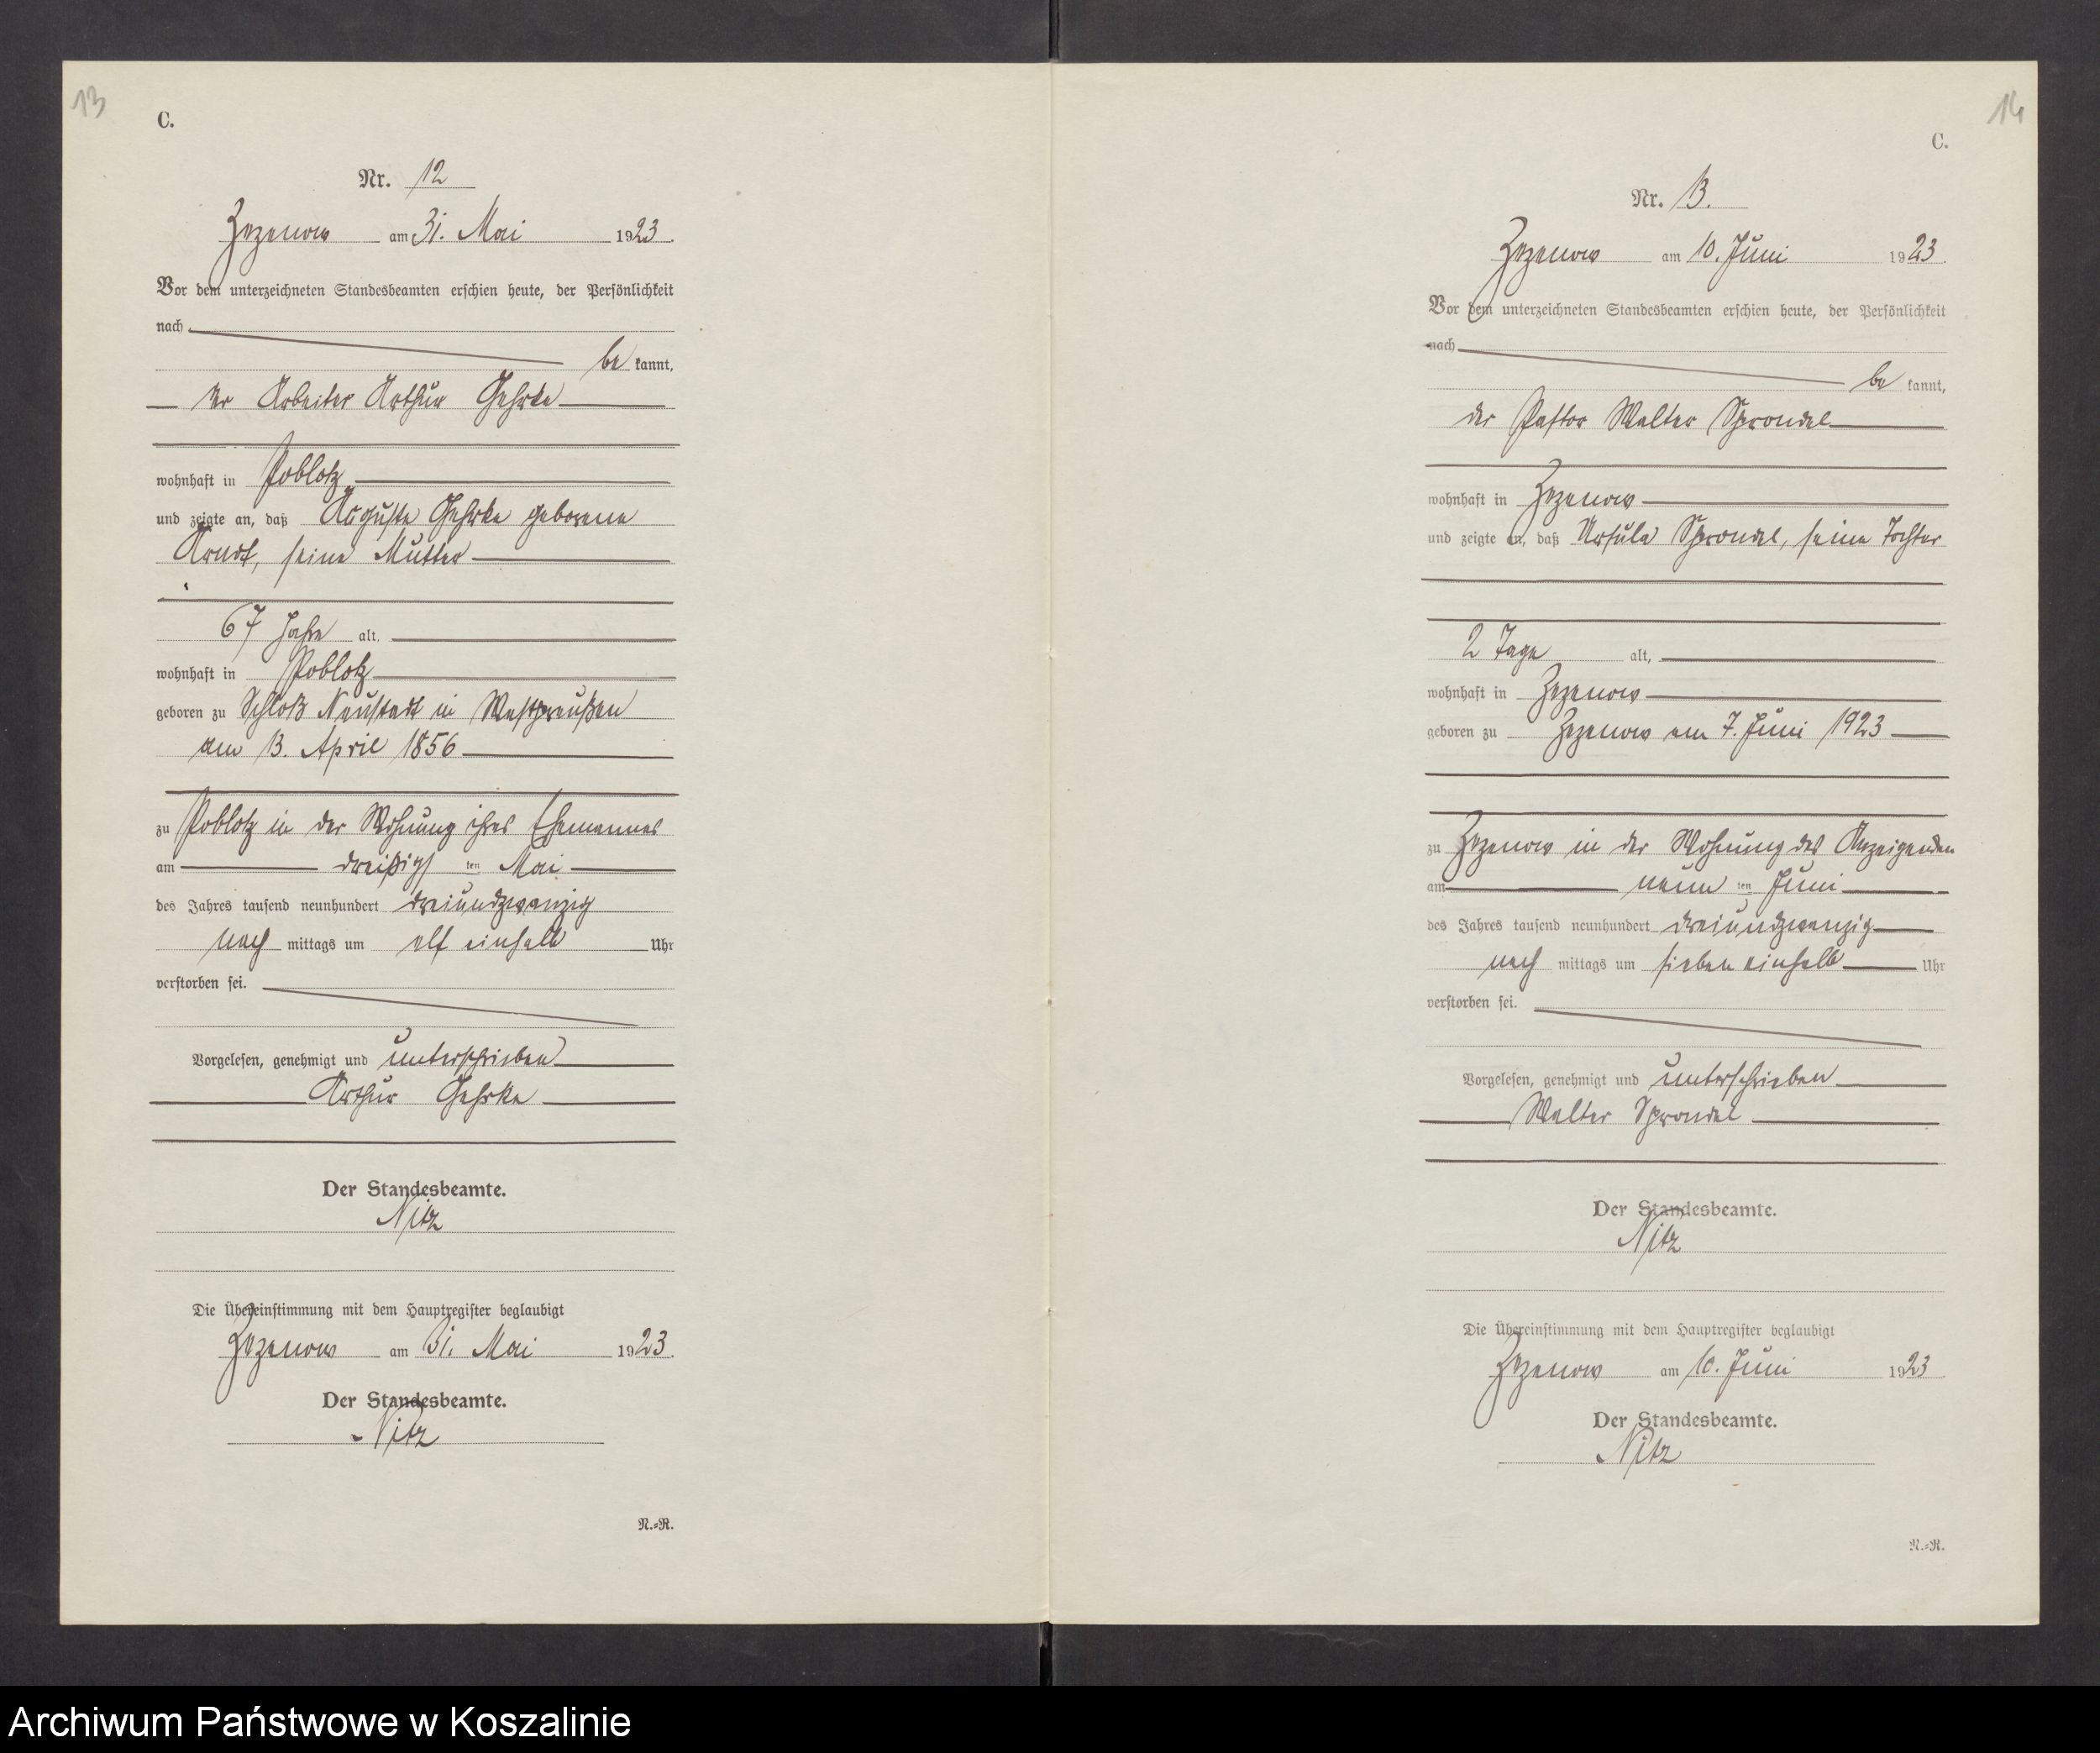 13
C.
Nr. 12
Zezenow am 31. Mai 1923.
Vor dem unterzeichneten Standesbeamten erschien heute, der Persönlichkeit
nach
be kannt,
der Arbeiter Arthur Gehrke
wohnhaft in Poblotz
und zeigte an, daß Auguste Gehrke geborene
Arndt, seine Mutter
67 Jahre alt,
wohnhaft in Poblotz
geboren zu Schloß Neustadt in Westpreußen
am 13. April 1856
zu Poblotz in der Wohnung ihres Ehemannes
am dreißigs ten Mai
des Jahres tausend neunhundert dreiundzwanzig
nach mittags um elf einhalb Uhr
verstorben sei.
Vorgelesen, genehmigt und unterschrieben
Arthur Gehrke
Der Standesbeamte.
Nitz
Die Übereinstimmung mit dem Hauptregister beglaubigt
Zezenow am 31. Mai 1923.
Der Standesbeamte.
Nitz
N.=R.
14
C.
Nr. 13.
Zezenow am 10. Juni 1923.
Vor dem unterzeichneten Standesbeamten erschien heute, der Persönlichkeit
nach
be kannt,
der Pastor Walter Sprondel
wohnhaft in Zezenow
und zeigte an, daß Ursula Sprondel, seine Tochter
2 Tage alt,
wohnhaft in Zezenow
geboren zu Zezenow am 7. Juni 1923
zu Zezenow in der Wohnung des Anzeigenden
am neun ten Juni
des Jahres tausend neunhundert dreiundzwanzig
nach mittags um sieben einhalb Uhr
verstorben sei.
Vorgelesen, genehmigt und unterschrieben
Walter Sprondel
Der Standesbeamte.
Nitz
Die Übereinstimmung mit dem Hauptregister beglaubigt
Zezenow am 10. Juni 1923
Der Standesbeamte.
Nitz
N.=R.
Archiwum Państwowe w Koszalinie